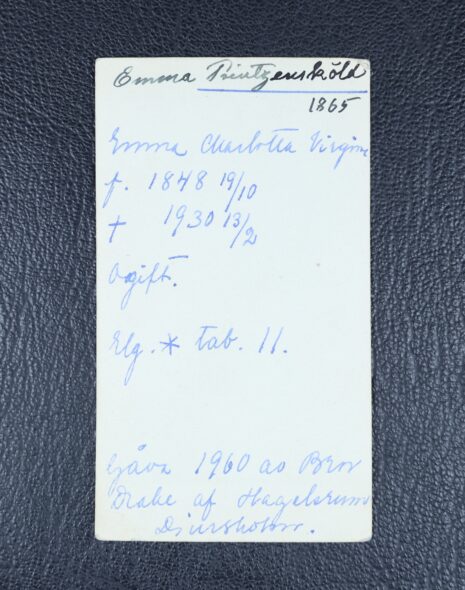 Emma Printzensköld
1865
Emma Charlotta Virginie
f. 1848 19/10
† 1930 13/2
Ogift.
Elg. * tab. 11.
Gåva 1960 av Bror
Drake af Hagelsrum
Djursholm.